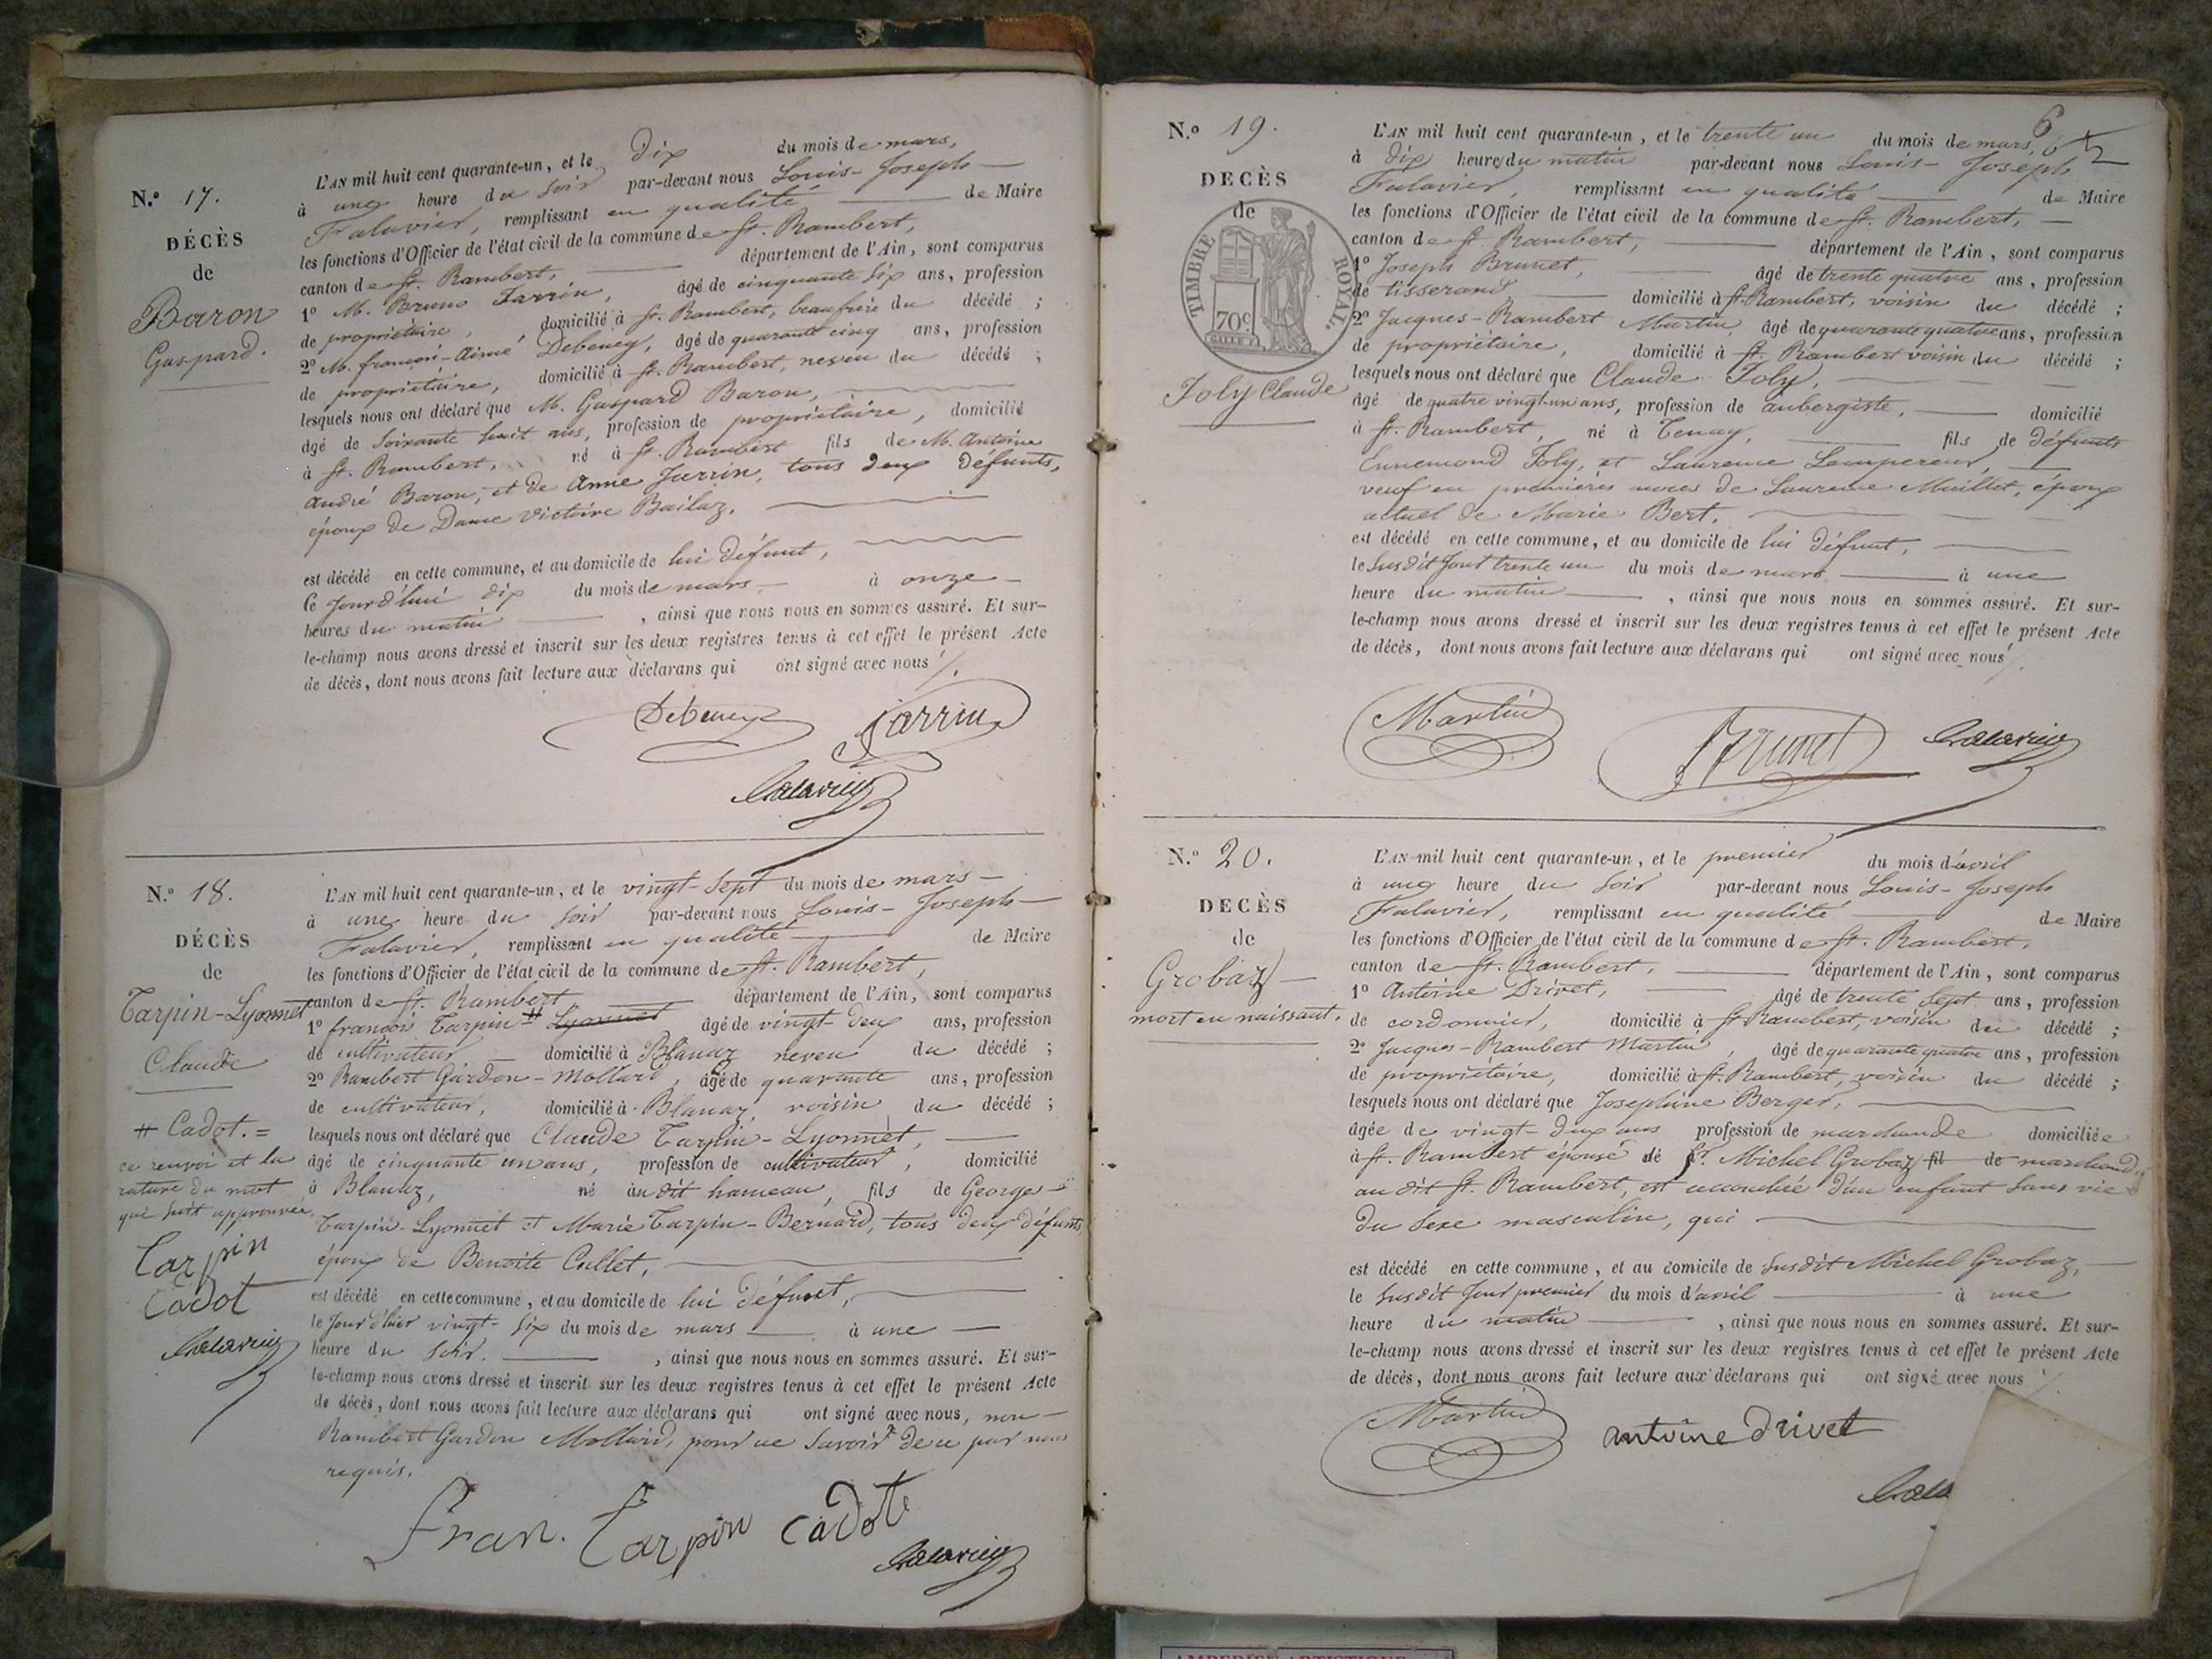 N.o 17.
DÉCÈS
de
Baron
Gaspard.
L'AN mil huit cent quarante-un, et le dix du mois de mars,
à une heure du soir par-devant nous Louis-Joseph
Falavier, remplissant en qualité de Maire
les fonctions d'Officier de l'état civil de la commune de St. Rambert,
canton de St. Rambert, département de l'Ain, sont comparus
1º M. Bruno Jarrin, âgé de cinquante six ans, profession
de propriétaire, domicilié à St. Rambert, beaufrère du décédé ;
2º M. françois-Aimé Debeney, âgé de quarante cinq ans, profession
de propriétaire, domicilié à St. Rambert, neveu du décédé ;
lesquels nous ont déclaré que M. Gaspard Baron,
âgé de soixante huit ans, profession de propriétaire, domicilié
à St. Rambert, né à St. Rambert fils de M. Antoine
André Baron, et de Anne Jarrin, tous deux défunts,
époux de Dame Victoire Bailaz.
est décédé en cette commune, et au domicile de lui défunt,
Ce jourd'hui dix du mois de mars à onze
heures du matin , ainsi que nous nous en sommes assuré. Et sur-
le-champ nous avons dressé et inscrit sur les deux registres tenus à cet effet le présent Acte
de décès, dont nous avons fait lecture aux déclarans qui ont signé avec nous ./.
Debeney Jarrin
Falavier
N.o 18.
DÉCÈS
de
Tarpin-Lyonnet
Claude
# Cadot. =
ce renvoi et la
rature du mot
qui suit approuvée
Tarpin
Cadot
Falavier
L'AN mil huit cent quarante-un, et le vingt-sept du mois de mars
à une heure du soir par-devant nous Louis-Joseph
Falavier, remplissant en qualité de Maire
les fonctions d'Officier de l'état civil de la commune de St. Rambert,
canton de St. Rambert département de l'Ain, sont comparus
1º françois Tarpin # Lyonnet âgé de vingt-deux ans, profession
de cultivateur domicilié à Blanaz neveu du décédé ;
2º Rambert Gardon-Mollard, âgé de quarante ans, profession
de cultivateur, domicilié à Blanaz, voisin du décédé ;
lesquels nous ont déclaré que Claude Tarpin-Lyonnet,
âgé de cinquante un ans, profession de cultivateur, domicilié
à Blanaz, né au dit hameau, fils de Georges
Tarpin-Lyonnet et Marie Tarpin-Bernard, tous deux défunts,
époux de Benoite Cullet,
est décédé en cette commune, et au domicile de lui défunt,
le jour d'hier vingt-six du mois de mars à une
heure du soir. , ainsi que nous nous en sommes assuré. Et sur-
le-champ nous avons dressé et inscrit sur les deux registres tenus à cet effet le présent Acte
de décès, dont nous avons fait lecture aux déclarans qui ont signé avec nous, non
Rambert Gardon Mollard, pour ne savoir de ce par nous
requis.
Fran. Tarpin Cadot
Falavier
6
N.o 19.
DECÈS
de
TIMBRE ROYAL.
70c
Joly Claude
L'AN mil huit cent quarante-un, et le trente un du mois de mars,
à dix heures du matin par-devant nous Louis-Joseph
Falavier, remplissant en qualité de Maire
les fonctions d'Officier de l'état civil de la commune de St. Rambert,
canton de St. Rambert, département de l'Ain, sont comparus
1º Joseph Brunet, âgé de trente quatre ans, profession
de tisserand domicilié à St. Rambert, voisin du décédé ;
2º Jacques-Rambert Martin, âgé de quarante quatre ans, profession
de propriétaire, domicilié à St. Rambert voisin du décédé ;
lesquels nous ont déclaré que Claude Joly,
âgé de quatre vingt-un ans, profession de aubergiste, domicilié
à St. Rambert, né à Tenay, fils de défunts
Ennemond Joly, et Laurence Lempereur,
veuf en premières noces de Laurence Maillet, époux
actuel de Marie Bert.
est décédé en cette commune, et au domicile de lui défunt,
le susdit jour trente un du mois de mars à une
heure du matin , ainsi que nous nous en sommes assuré. Et sur-
le-champ nous avons dressé et inscrit sur les deux registres tenus à cet effet le présent Acte
de décès, dont nous avons fait lecture aux déclarans qui ont signé avec nous ./.
Martin Brunet Falavier
N.o 20.
DECÈS
de
Grobaz
mort en naissant.
L'AN mil huit cent quarante-un, et le premier du mois d'avril
à une heure du soir par-devant nous Louis-Joseph
Falavier, remplissant en qualité de Maire
les fonctions d'Officier de l'état civil de la commune de St. Rambert,
canton de St. Rambert, département de l'Ain, sont comparus
1º Antoine Drivet, âgé de trente sept ans, profession
de cordonnier, domicilié à St. Rambert, voisin du décédé ;
2º Jacques-Rambert Martin, âgé de quarante quatre ans, profession
de propriétaire, domicilié à St. Rambert, voisin du décédé ;
lesquels nous ont déclaré que Josephine Berger,
âgée de vingt-deux ans profession de marchande domiciliée
à St. Rambert épouse de Sr. Michel Grobaz fil de marchand,
au dit St. Rambert, est accouchée d'un enfant sans vie
du sexe masculin, qui
est décédé en cette commune, et au domicile de susdit Michel Grobaz,
le susdit jour premier du mois d'avril à une
heure du matin , ainsi que nous nous en sommes assuré. Et sur-
le-champ nous avons dressé et inscrit sur les deux registres tenus à cet effet le présent Acte
de décès, dont nous avons fait lecture aux déclarans qui ont signé avec nous ./.
Martin antoine drivet